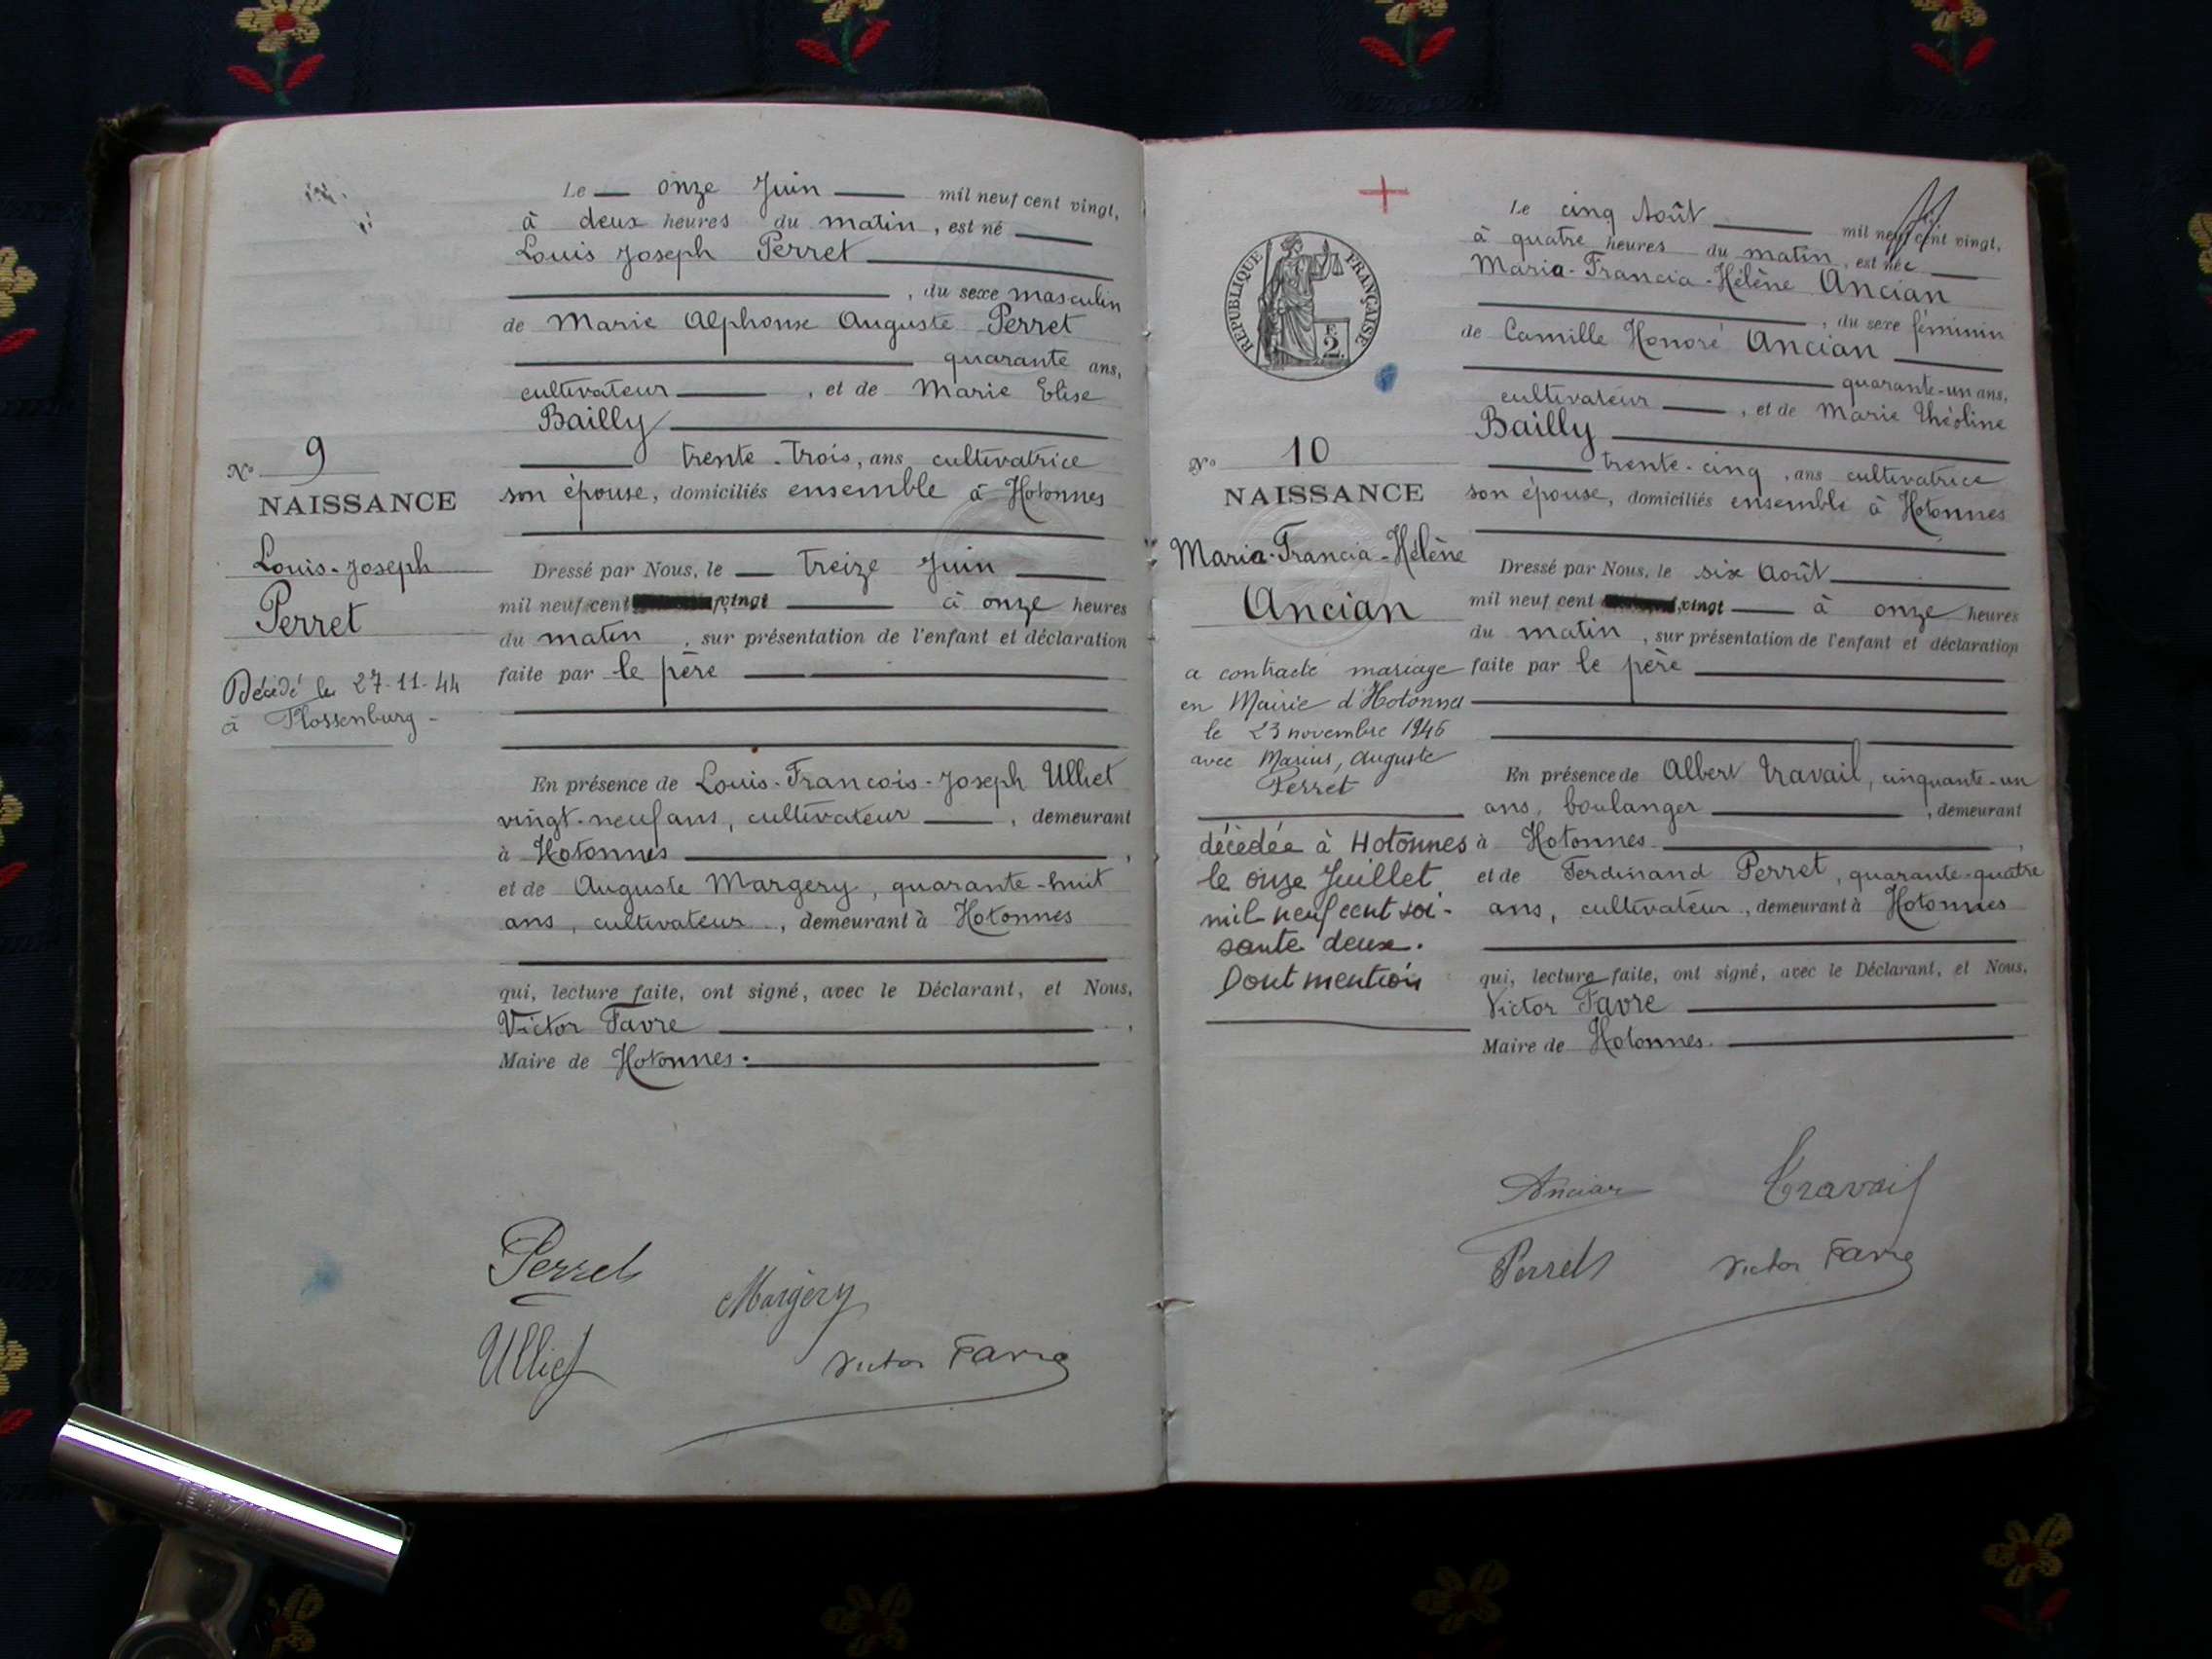 Le onze Juin mil neuf cent vingt,
à deux heures du matin, est né
Louis Joseph Perret
, du sexe masculin
de Marie Alphonse Auguste Perret
quarante ans,
cultivateur , et de Marie Elise
Bailly
trente-trois, ans cultivatrice
son épouse, domiciliés ensemble à Hotonnes
No 9
NAISSANCE
Louis-Joseph
Perret
Décédé le 27-11-44
à Flossenburg -
Dressé par Nous, le treize Juin
mil neuf cent vingt à onze heures
du matin, sur présentation de l'enfant et déclaration
faite par le père
En présence de Louis-Francois-Joseph Ulliet
vingt-neuf ans, cultivateur , demeurant
à Hotonnes ,
et de Auguste Margery, quarante-huit
ans, cultivateur, demeurant à Hotonnes
qui, lecture faite, ont signé, avec le Déclarant, et Nous,
Victor Favre ,
Maire de Hotonnes.
Perret
Margery
Ulliet
Victor Favre
RÉPUBLIQUE FRANÇAISE
2
No 10
NAISSANCE
Maria-Francia-Hélène
Ancian
a contracté mariage
en Mairie d'Hotonnes
le 23 novembre 1946
avec Marius, Auguste
Perret
décédée à Hotonnes
le onze Juillet
mil neuf cent soi-
sante deux.
Dont mention
Le cinq Août mil neuf cent vingt,
à quatre heures du matin, est née
Maria-Francia-Hélène Ancian
, du sexe féminin
de Camille Honoré Ancian
quarante-un ans,
cultivateur , et de Marie Théoline
Bailly
trente-cinq, ans cultivatrice
son épouse, domiciliés ensemble à Hotonnes
Dressé par Nous, le six Août
mil neuf cent vingt à onze heures
du matin, sur présentation de l'enfant et déclaration
faite par le père
En présence de Albert Travail, cinquante-un
ans, boulanger , demeurant
à Hotonnes ,
et de Ferdinand Perret, quarante-quatre
ans, cultivateur, demeurant à Hotonnes
qui, lecture faite, ont signé, avec le Déclarant, et Nous,
Victor Favre
Maire de Hotonnes.
Ancian Travail
Perret Victor Favre